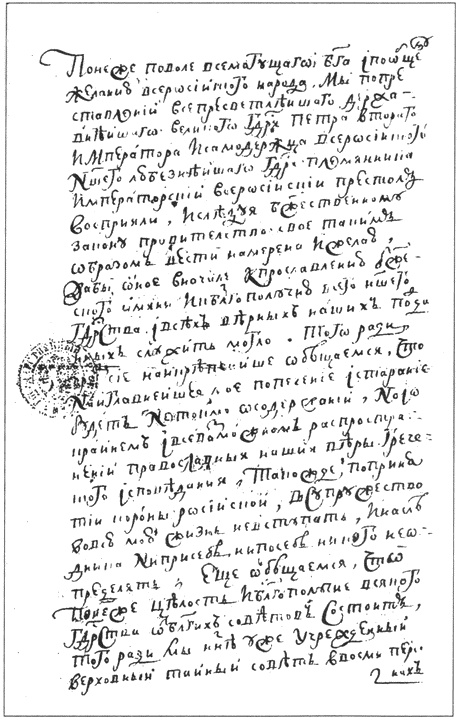 Понеже поволе всемогущаго бга іпообще
желанию всеросиіского народа, Мы попре
ставлениі всепресветлѣишаго держа-
внѣишаго великого Гдрѧ Петра второго
императора исамодержца всеросиіского
Ншего любезнѣишаго Гдрѧ племянника
императорскиі всеросиіскиі престолъ
восприяли, ислѣдуя бжественному
закону правителство свое такимъ
ѡбразомъ вести намерена ижелаю,
дабы ѡное вначале кпрославлению бже-
ского имяни икблгополучию всего ншего
Гдрства, івсѣхъ вѣрныхъ нашихъ подда
нныхъ служить могло. Того ради,
сие наикрѣпчаише ѡбѣщаемся, что
наиглавнеишее мое попечение істарание
будетъ нетокмо ѡсодержаниі, ноіѡ
краинемъ івсевозможномъ распростра-
нениі православныя нашия вѣры грече-
ского ісповѣдания, такожде, поприня
тиі короны росиіскои, всупружество
вовсю мою жизнь невступать, инаслѣ
дника, ниприсебѣ, нипосебѣ никого неѡ-
пределять, Еще ѡбѣщаемся, что
понеже цѣлость иблгополучие всякого
Гдрства ѿблгихъ совѣтовъ состоитъ,
того ради мы ннѣ уже учрежденныі
верховныі таіныі совѣтъ восми персо
нахъ